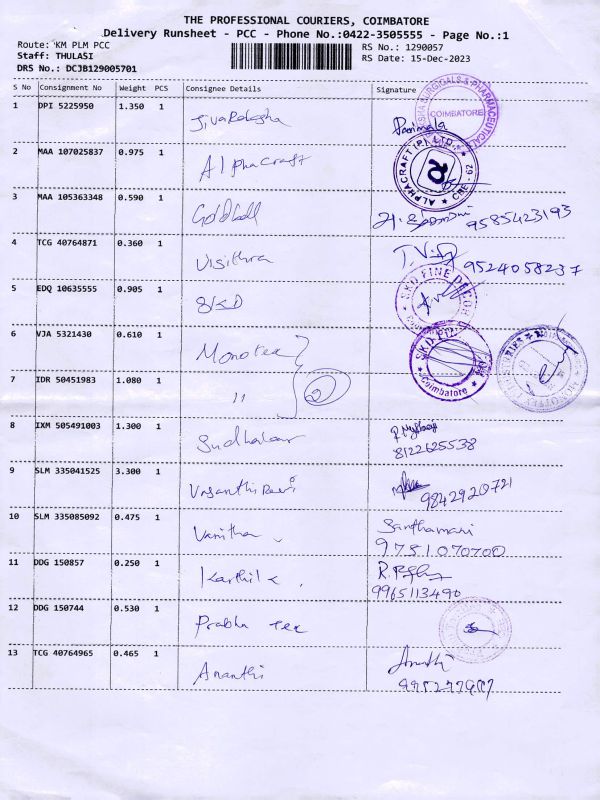 THE PROFESSIONAL COURIERS, COIMBATORE
Delivery Runsheet - PCC - Phone No.:0422-3505555 - Page No.:1
Route: KM PLM PCC
Staff: THULASI
DRS No.: DCJB129005701
RS No.: 1290057
RS Date: 15-Dec-2023
S No Consignment No Weight PCS Consignee Details Signature
1 DPI 5225950 1.350 1 Parimala
COIMBATORE
2 MAA 107025837 0.975 1 Alphacraft
ALPHACRAFT (P) LTD. CBE-62
3 MAA 105363348 0.590 1 Goldbell 9585423193
4 TCG 40764871 0.360 1 Visithra 9524058237
5 EDQ 10635555 0.905 1 SKD
SKD FINE
6 VJA 5321430 0.610 1 Monotex
SKD
Coimbatore
7 IDR 50451983 1.080 1 11 2
8 IXM 505491003 1.300 1 Sudhakar 8122625538
9 SLM 335041525 3.300 1 Vasanthi Devi 9842920721
10 SLM 335085092 0.475 1 Vanitha Santhamani
9751070700
11 DDG 150857 0.250 1 Karthik
9965113490
12 DDG 150744 0.530 1 Prabha Tex
13 TCG 40764965 0.465 1 Ananthi